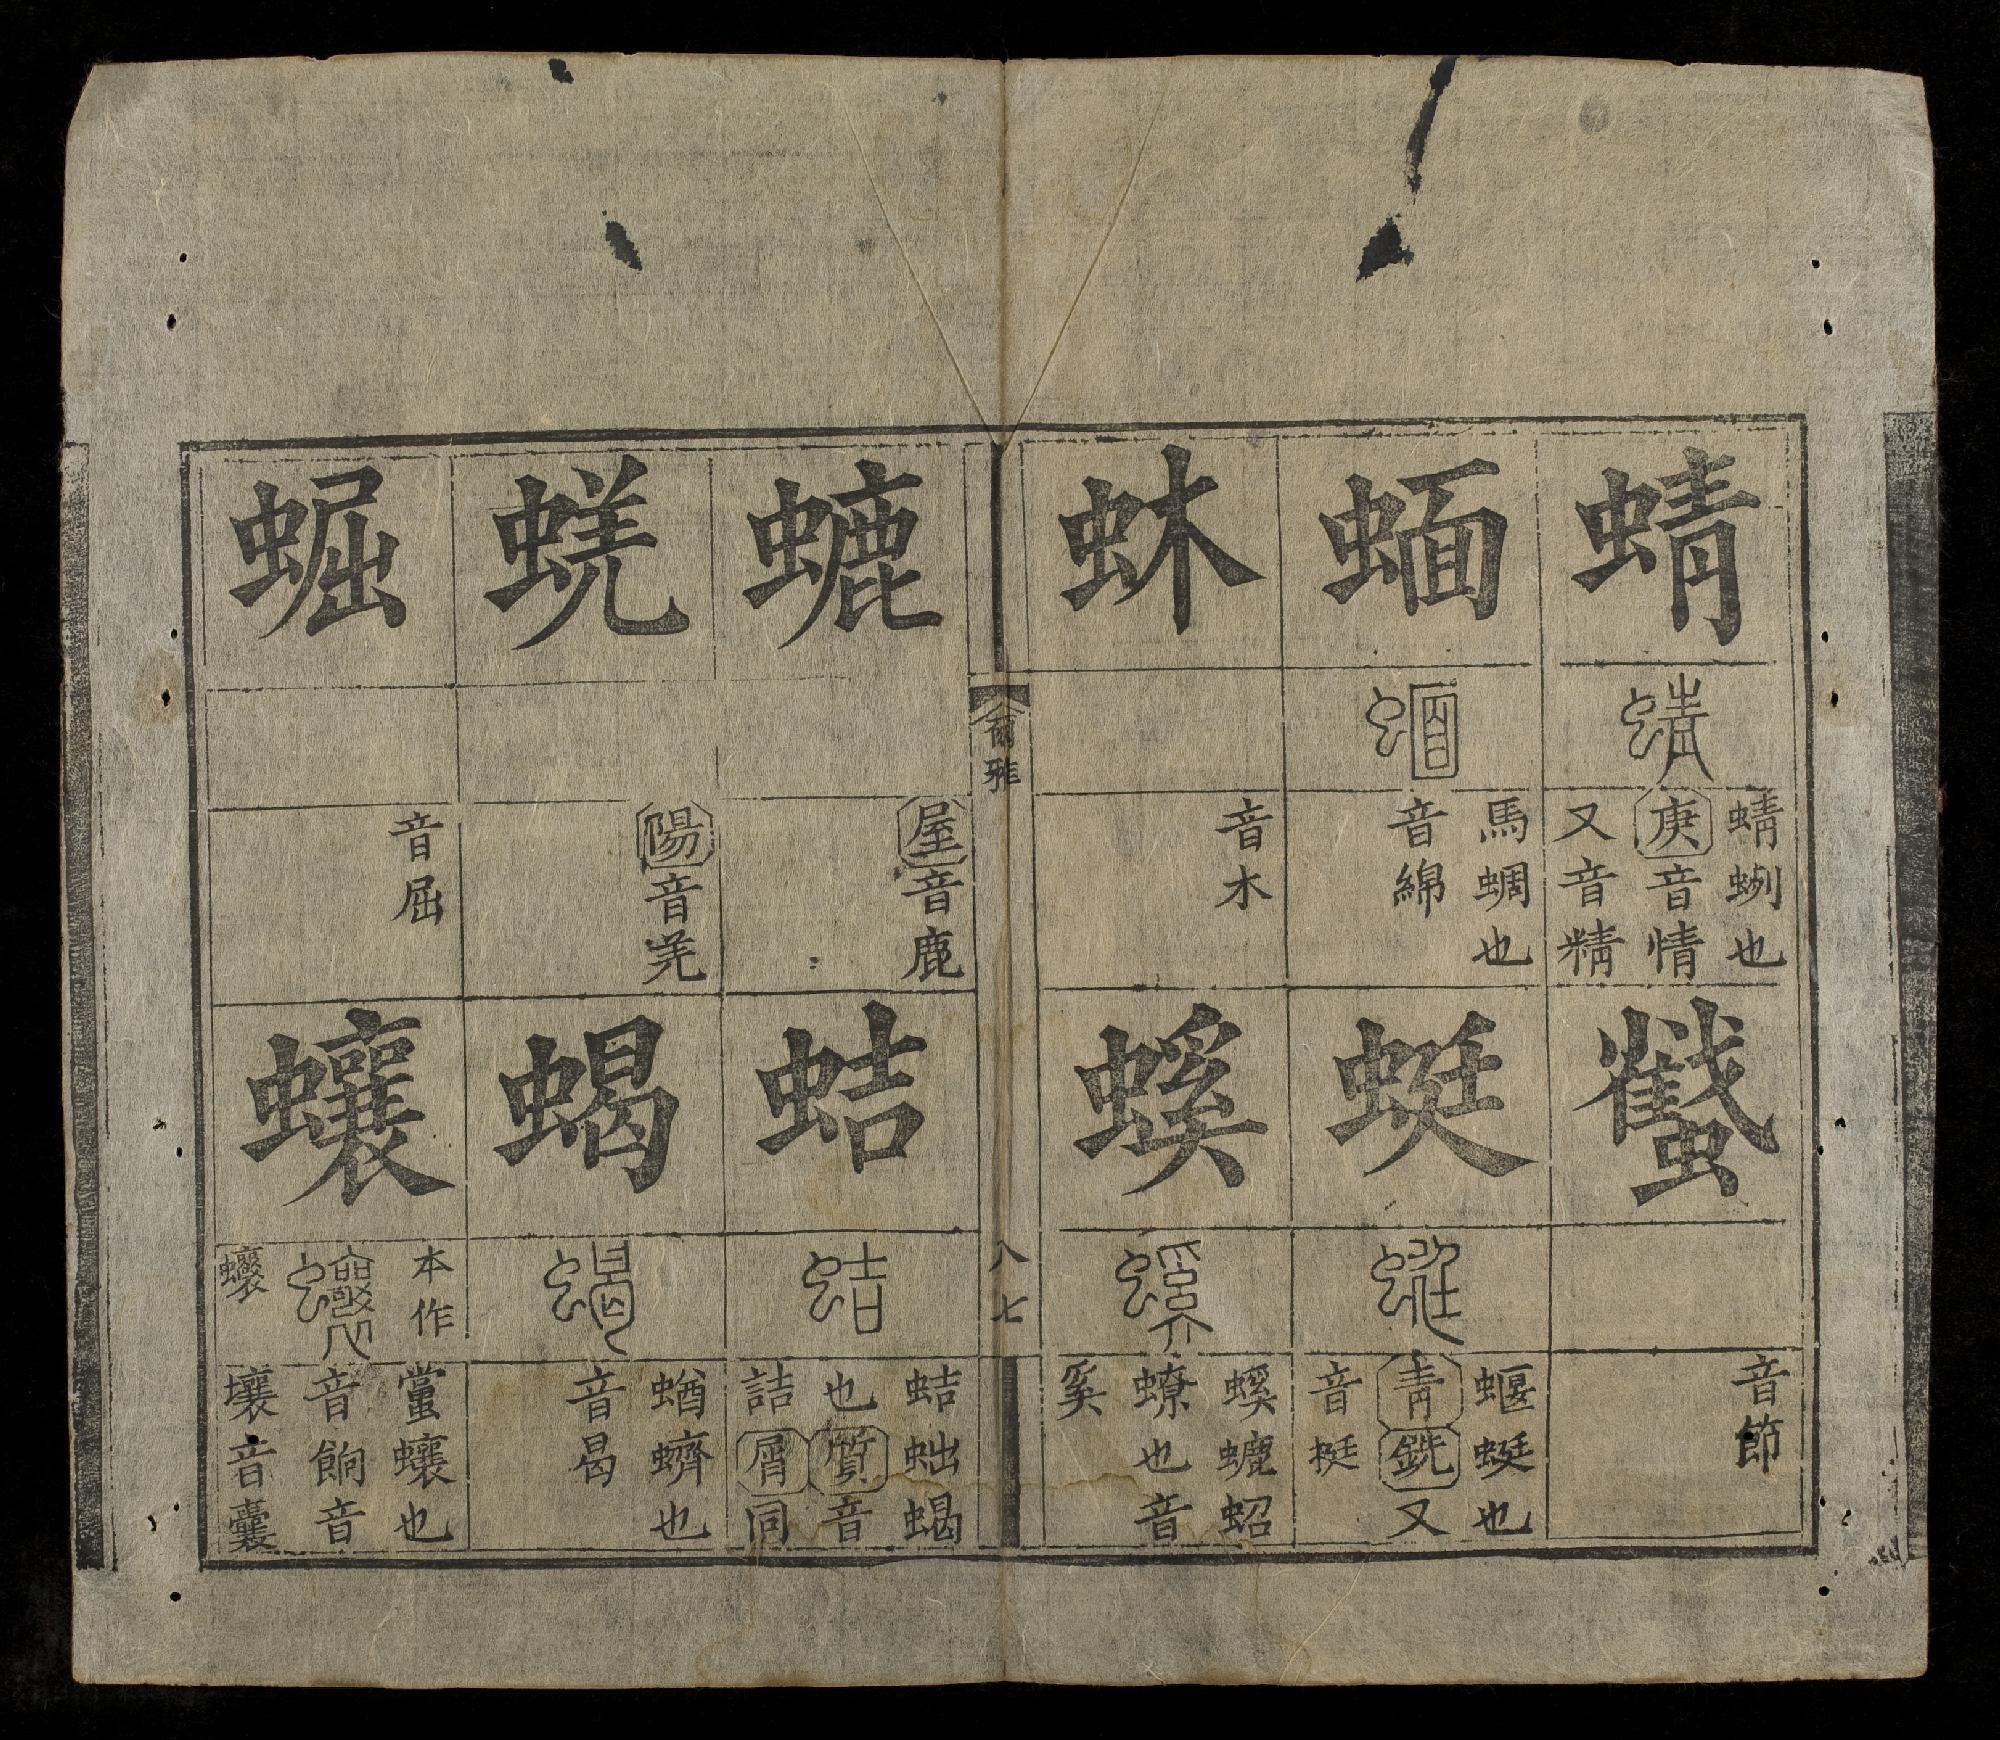 蜻
蜻蛚也
庚音情
又音精
蠽
音節
蝒
馬蜩也
音綿
蜓
蝘蜓也
青銑又
音挺
蚞
音木
螇
螇螰蛁
蟟也音
奚
爾雅
八七
螰
屋音鹿
蛣
蛣蚍蝎
也質音
詰屑同
音㡆
陽音羌
蝎
蝤蠐也
音曷
音屈
蠰
本作
蠰
蟷蠰也
音餉音
壤音囊